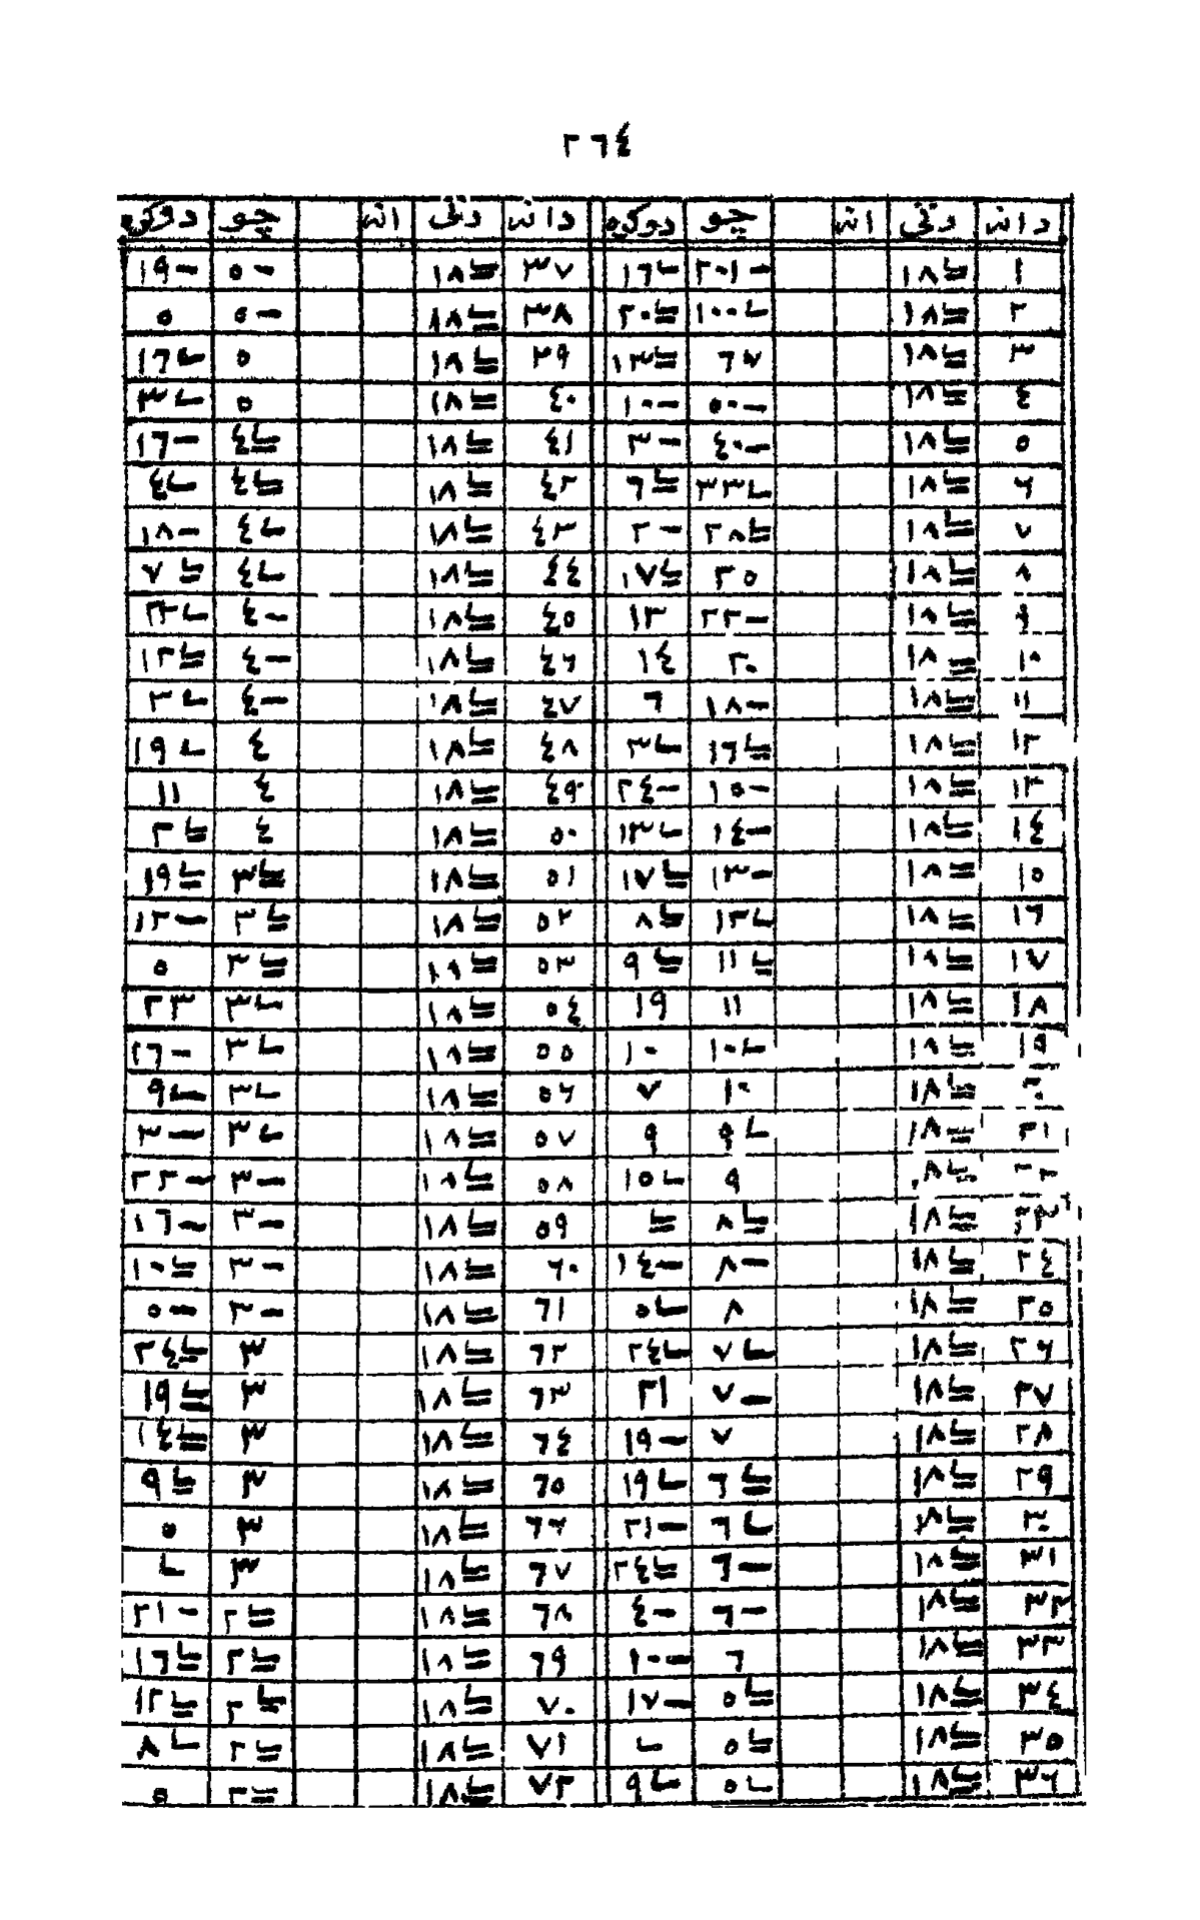 ٢٦٤
دانہ رتی انہ چو دوکرہ دانہ رتی انہ چو دوکرہ
١ ١٨≡ ٢٠١- ١٦ـا ٣٧ ١٨≡ ٥- ١٩-
٢ ١٨≡ ١٠٠ـا ٢٠≡ ٣٨ ١٨≡ ٥- ٥
٣ ١٨≡ ٦٧ ١٣≡ ٣٩ ١٨≡ ٥ ١٦ـا
٤ ١٨≡ ٥٠- ١٠- ٤٠ ١٨≡ ٥ ٣ـا
٥ ١٨≡ ٤٠- ٣- ٤١ ١٨≡ ٤≡ ١٦-
٦ ١٨≡ ٣٣ـا ٦≡ ٤٢ ١٨≡ ٤≡ ٤ـا
٧ ١٨≡ ٢٨≡ ٢- ٤٣ ١٨≡ ٤ـا ١٨-
٨ ١٨≡ ٢٥ ١٧≡ ٤٤ ١٨≡ ٤ـا ٧≡
٩ ١٨≡ ٢٢- ١٣ ٤٥ ١٨≡ ٤- ٢٢ـا
١٠ ١٨≡ ٢٠ ١٤ ٤٦ ١٨≡ ٤- ١٢≡
١١ ١٨≡ ١٨- ٦ ٤٧ ١٨≡ ٤- ٢ـا
١٢ ١٨≡ ١٦≡ ٣ـا ٤٨ ١٨≡ ٤ ١٩ـا
١٣ ١٨≡ ١٥- ٢٤- ٤٩ ١٨≡ ٤ ١١
١٤ ١٨≡ ١٤- ١٣ـا ٥٠ ١٨≡ ٤ ٢≡
١٥ ١٨≡ ١٣- ١٧≡ ٥١ ١٨≡ ٣≡ ١٩≡
١٦ ١٨≡ ١٢ـا ٨≡ ٥٢ ١٨≡ ٣≡ ١٢-
١٧ ١٨≡ ١١≡ ٩≡ ٥٣ ١٨≡ ٣≡ ٥
١٨ ١٨≡ ١١ ١٩ ٥٤ ١٨≡ ٣ـا ٢٣
١٩ ١٨≡ ١٠ـا ١٠ ٥٥ ١٨≡ ٣ـا ١٦-
٢٠ ١٨≡ ١٠ ٧ ٥٦ ١٨≡ ٣ـا ٩ـا
٢١ ١٨≡ ٩ـا ٩ ٥٧ ١٨≡ ٣ـا ٣-
٢٢ ١٨≡ ٩ ١٥ـا ٥٨ ١٨≡ ٣- ٢٢-
٢٣ ١٨≡ ٨≡ ≡ ٥٩ ١٨≡ ٣- ١٦-
٢٤ ١٨≡ ٨- ١٤- ٦٠ ١٨≡ ٣- ١٠≡
٢٥ ١٨≡ ٨ ٥ـا ٦١ ١٨≡ ٣- ٥-
٢٦ ١٨≡ ٧ـا ٢٤ـا ٦٢ ١٨≡ ٣ ٢٤≡
٢٧ ١٨≡ ٧- ٢١ ٦٣ ١٨≡ ٣ ١٩≡
٢٨ ١٨≡ ٧ ١٩- ٦٤ ١٨≡ ٣ ١٤≡
٢٩ ١٨≡ ٦≡ ١٩ـا ٦٥ ١٨≡ ٣ ٩≡
٣٠ ١٨≡ ٦ـا ٢١- ٦٦ ١٨≡ ٣ ٥
٣١ ١٨≡ ٦- ٢٤≡ ٦٧ ١٨≡ ٣ ـا
٣٢ ١٨≡ ٦- ٤- ٦٨ ١٨≡ ٢≡ ٢١-
٣٣ ١٨≡ ٦ ١٠- ٦٩ ١٨≡ ٢≡ ١٦≡
٣٤ ١٨≡ ٥≡ ١٧- ٧٠ ١٨≡ ٢≡ ١٢≡
٣٥ ١٨≡ ٥≡ ـا ٧١ ١٨≡ ٢≡ ٨ـا
٣٦ ١٨≡ ٥ـا ٩ـا ٧٢ ١٨≡ ٢≡ ٥